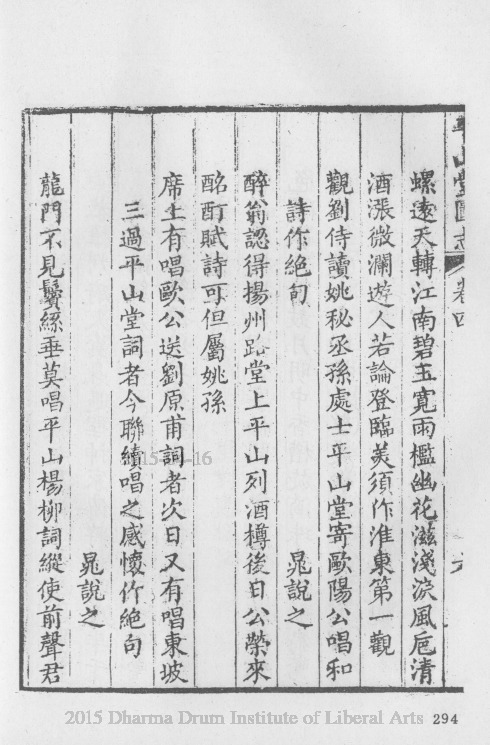 平山堂圖志 卷四
螺遠天轉江南碧玉寬雨檻幽花滋淺淚風卮清
酒漲微瀾遊人若論登臨美須作淮東第一觀
觀劉侍讀姚秘丞孫處士平山堂寄歐陽公唱和
詩作絕句
晁說之
醉翁認得揚州路堂上平山列酒樽後日公榮來
酩酊賦詩可但屬姚孫
席上有唱歐公送劉原甫詞者次日又有唱東坡
三過平山堂詞者今聯續唱之感懷作絕句
晁說之
龍門不見鬢絲垂莫唱平山楊柳詞縱使前聲君
2015 Dharma Drum Institute of Liberal Arts
294